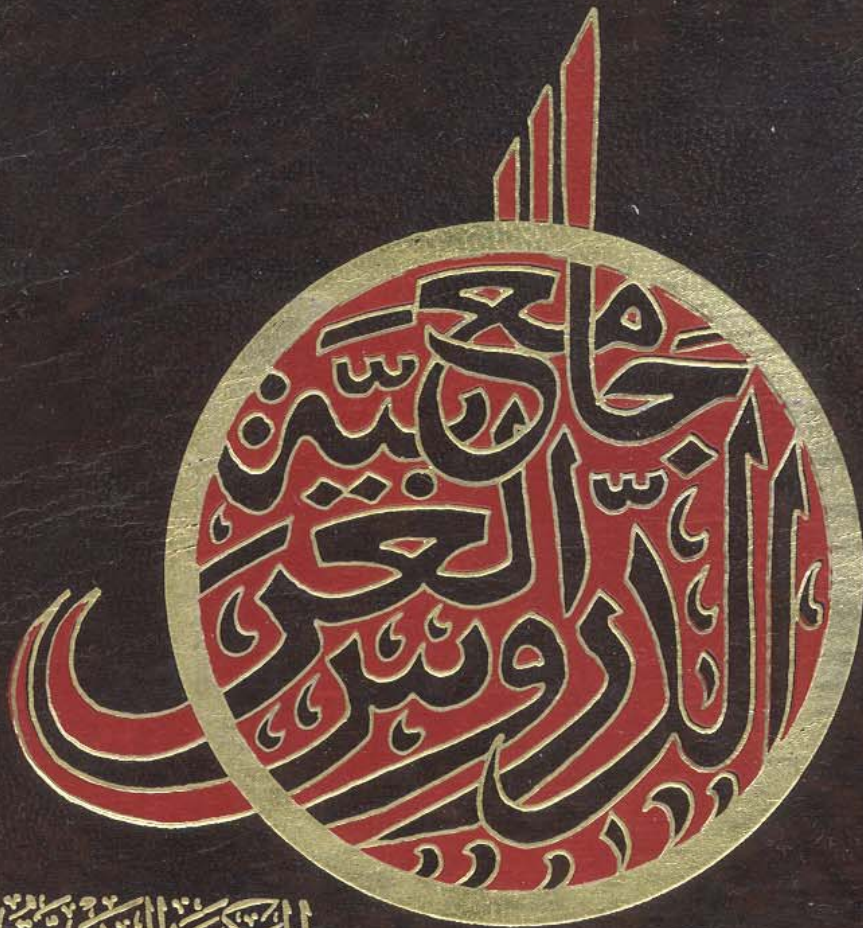 جامع
الدّروس
العربيّة